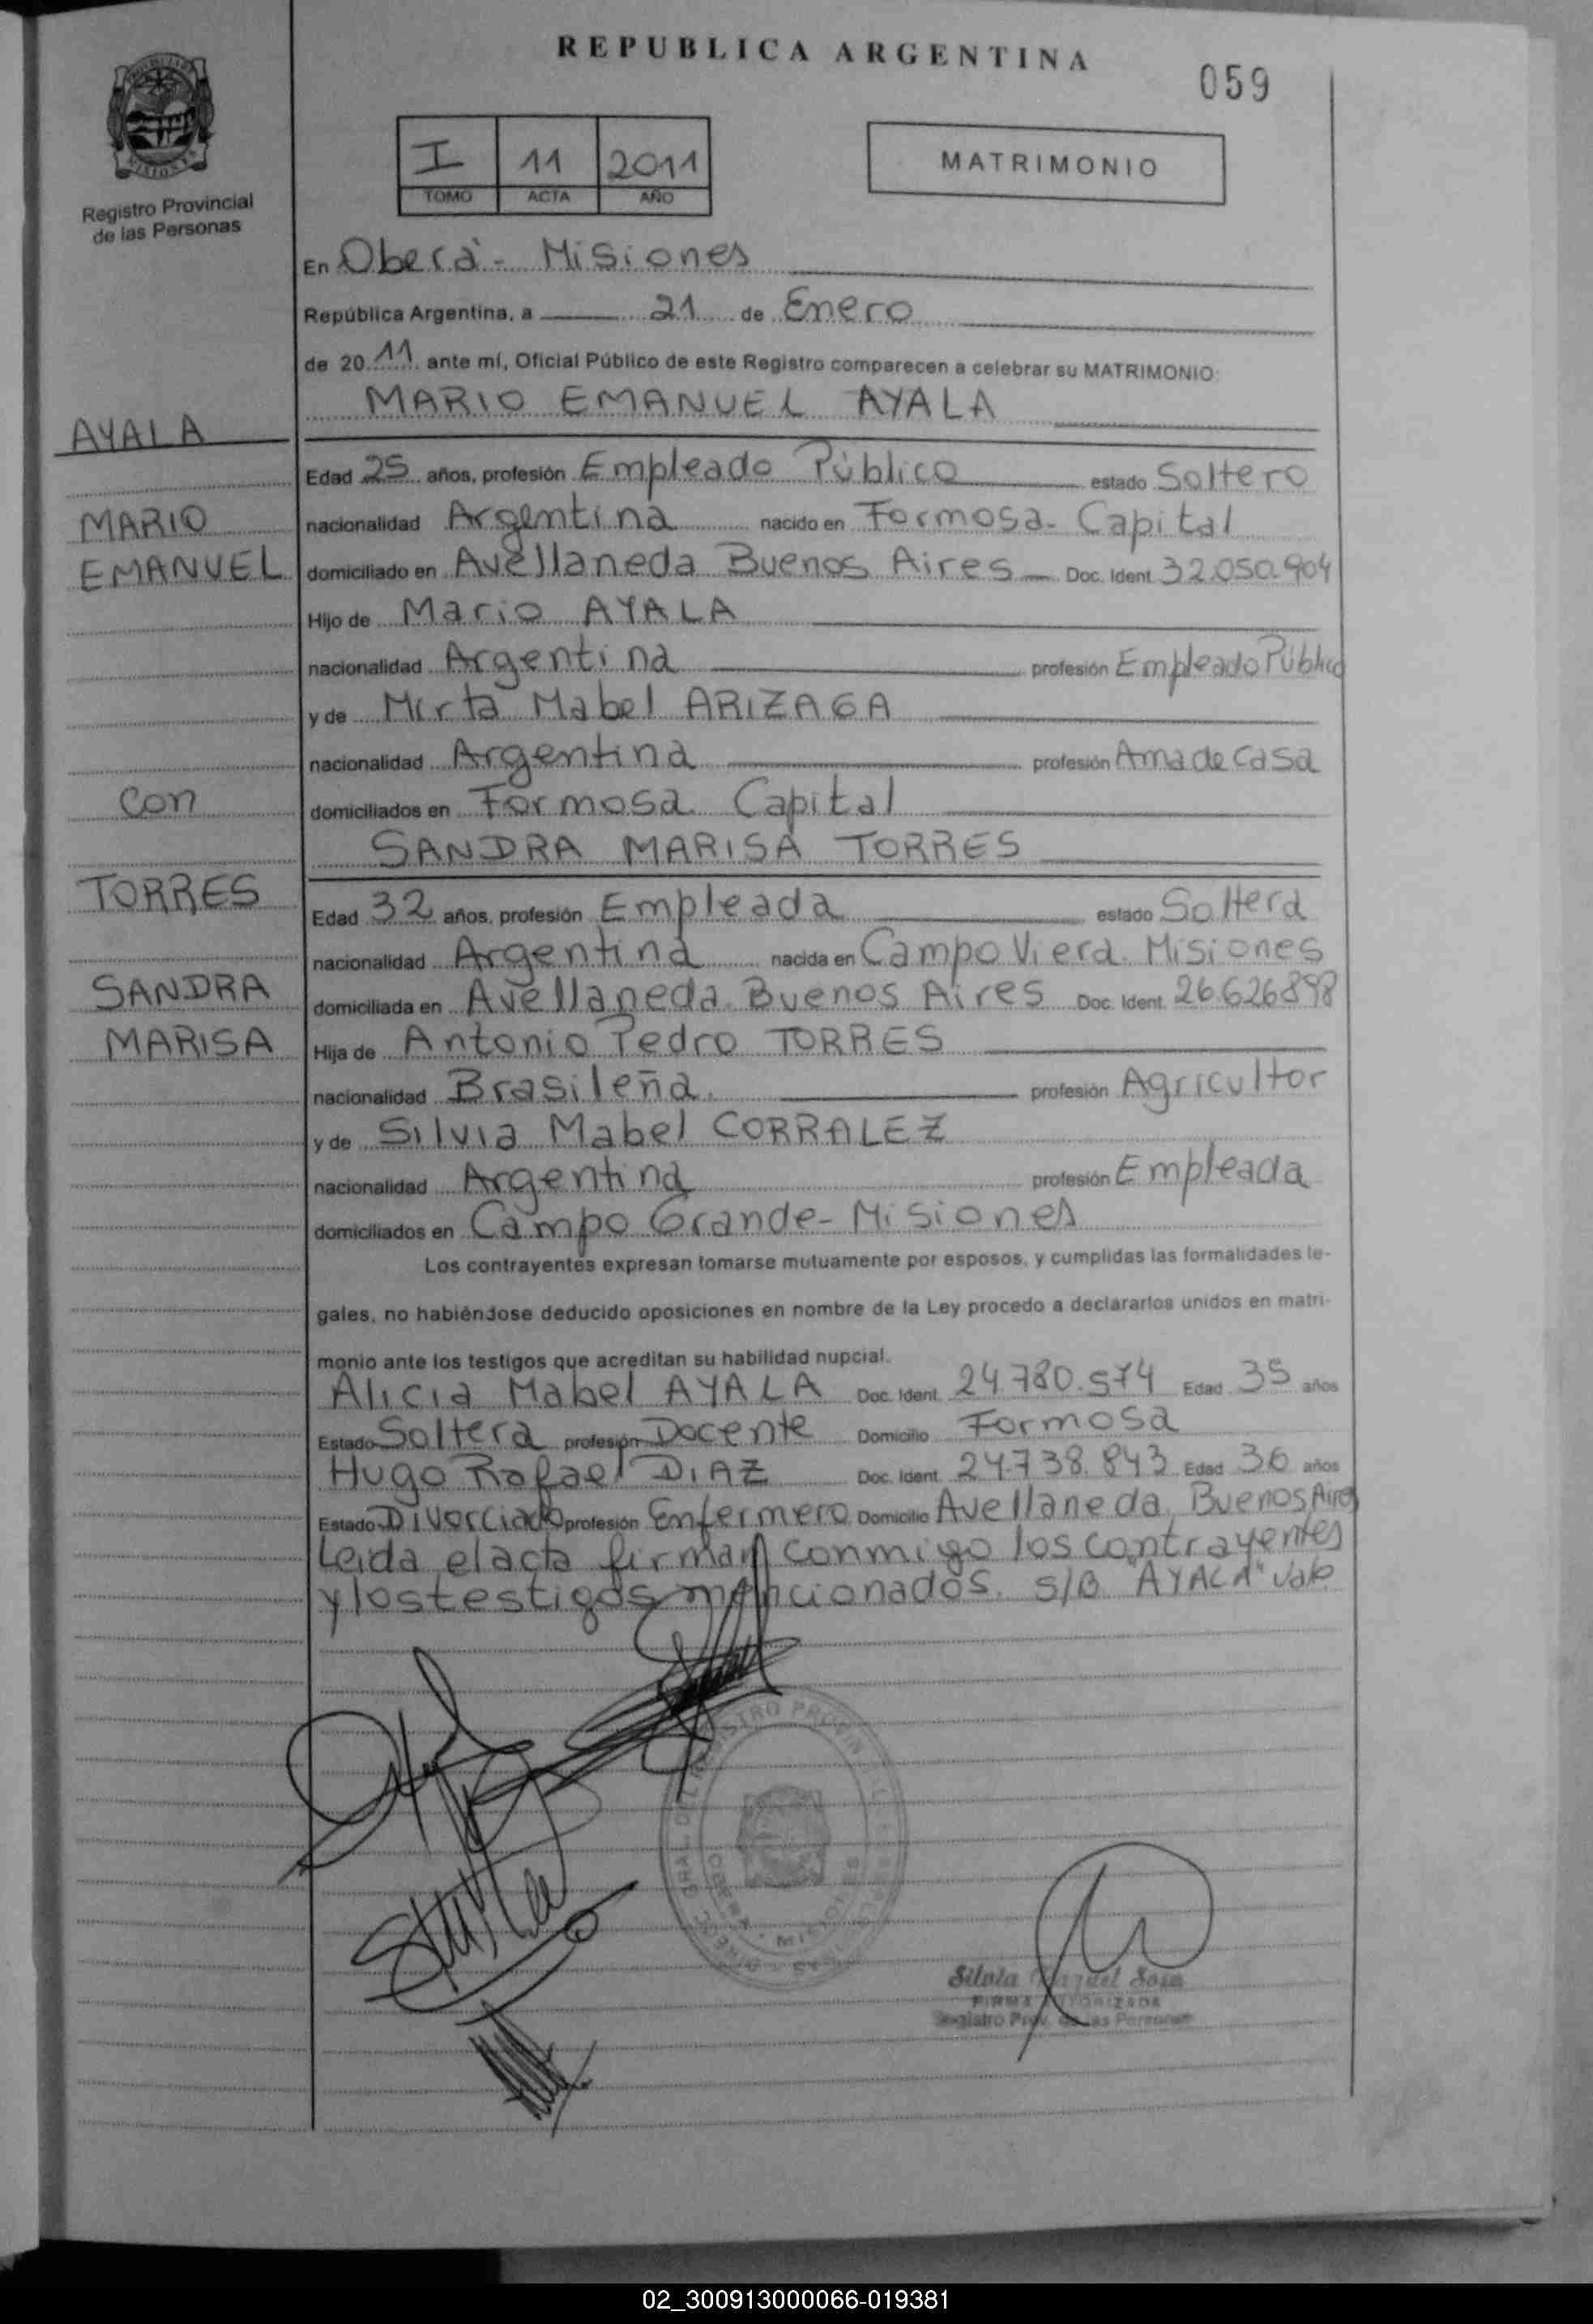 REPUBLICA ARGENTINA
059
Registro Provincial
de las Personas
I 11 2011
TOMO ACTA AÑO
MATRIMONIO
En Oberá - Misiones
República Argentina, a 21 de Enero
de 20 11 ante mí, Oficial Público de este Registro comparecen a celebrar su MATRIMONIO:
MARIO EMANUEL AYALA
AYALA
Edad 25 años, profesión Empleado Público estado Soltero
MARIO
nacionalidad Argentina nacido en Formosa - Capital
EMANUEL
domiciliado en Avellaneda Buenos Aires Doc. Ident. 32.050.904
Hijo de Mario AYALA
nacionalidad Argentina profesión Empleado Público
y de Mirta Mabel ARIZAGA
nacionalidad Argentina profesión Ama de casa
con
domiciliados en Formosa. Capital
SANDRA MARISA TORRES
TORRES
Edad 32 años, profesión Empleada estado Soltera
nacionalidad Argentina nacida en Campo Viera. Misiones
SANDRA
domiciliada en Avellaneda. Buenos Aires Doc. Ident. 26.626.898
MARISA
Hija de Antonio Pedro TORRES
nacionalidad Brasileña. profesión Agricultor
y de Silvia Mabel CORRALEZ
nacionalidad Argentina profesión Empleada
domiciliados en Campo Grande - Misiones
Los contrayentes expresan tomarse mutuamente por esposos, y cumplidas las formalidades le-
gales, no habiéndose deducido oposiciones en nombre de la Ley procedo a declararlos unidos en matri-
monio ante los testigos que acreditan su habilidad nupcial.
Alicia Mabel AYALA Doc. Ident. 24.780.574 Edad 35 años
Estado Soltera profesión Docente Domicilio Formosa
Hugo Rafael DIAZ Doc. Ident. 24.738.843 Edad 36 años
Estado Divorciado profesión Enfermero Domicilio Avellaneda, Buenos Aires
Leida el acta firman conmigo los contrayentes
y los testigos mencionados. S/B "AYALA" Vale
Silvia Sosa
FIRMA AUTORIZADA
Registro Prov. de las Personas
02_300913000066-019381